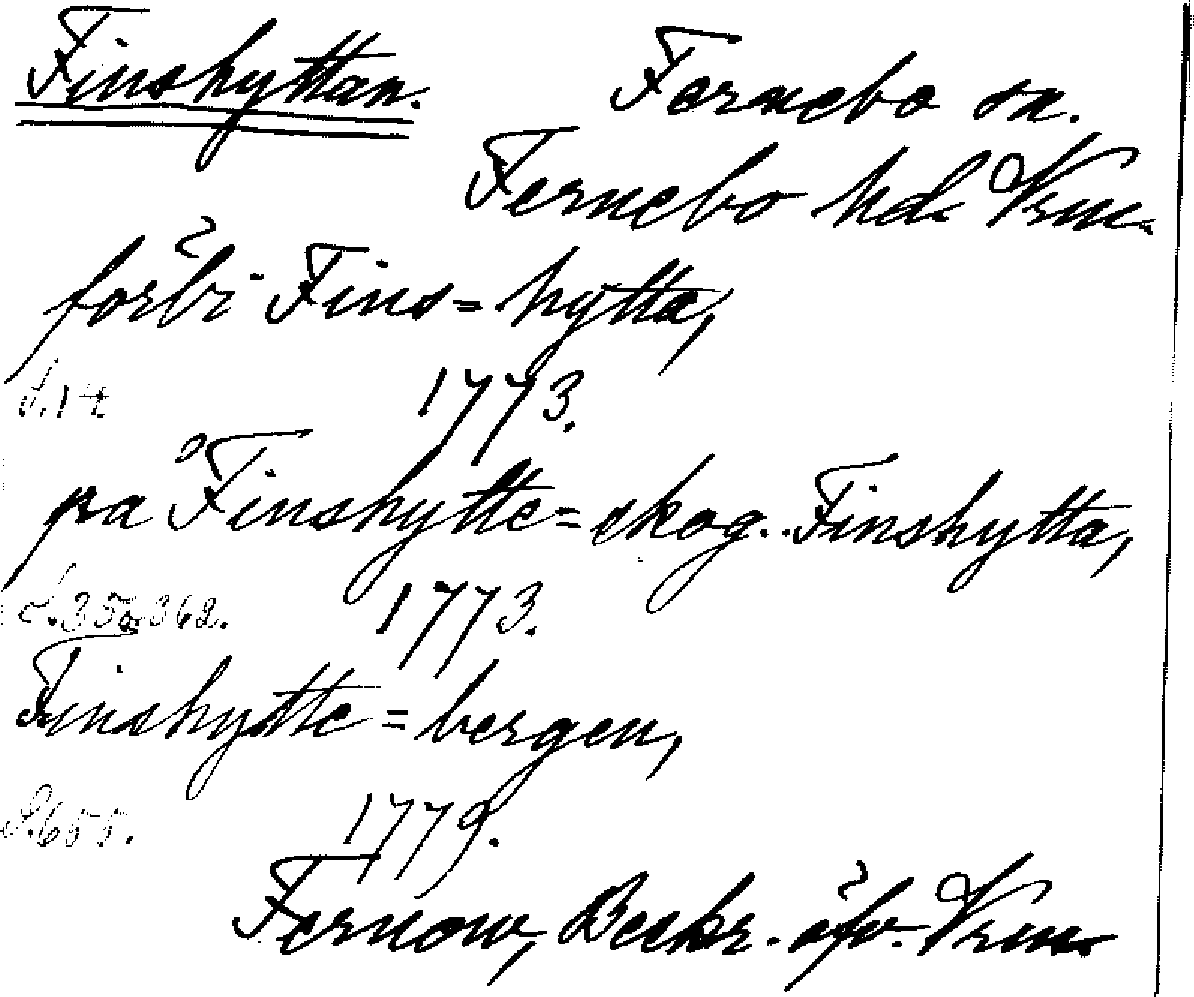 Finshyttan. Fernebo sn.
Fernebo hd. Vrm.
förbi Fins=hytta,
s. 14 1773.
på Finshytte=skog. Finshytta,
s. 352, 362. 1773.
Finshytte=bergen,
S. 655. 1779.
Fernow, Beskr. öfv. Vrm.